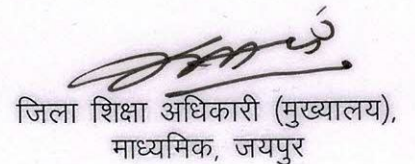 जिला शिक्षा अधिकारी (मुख्यालय),
माध्यमिक, जयपुर